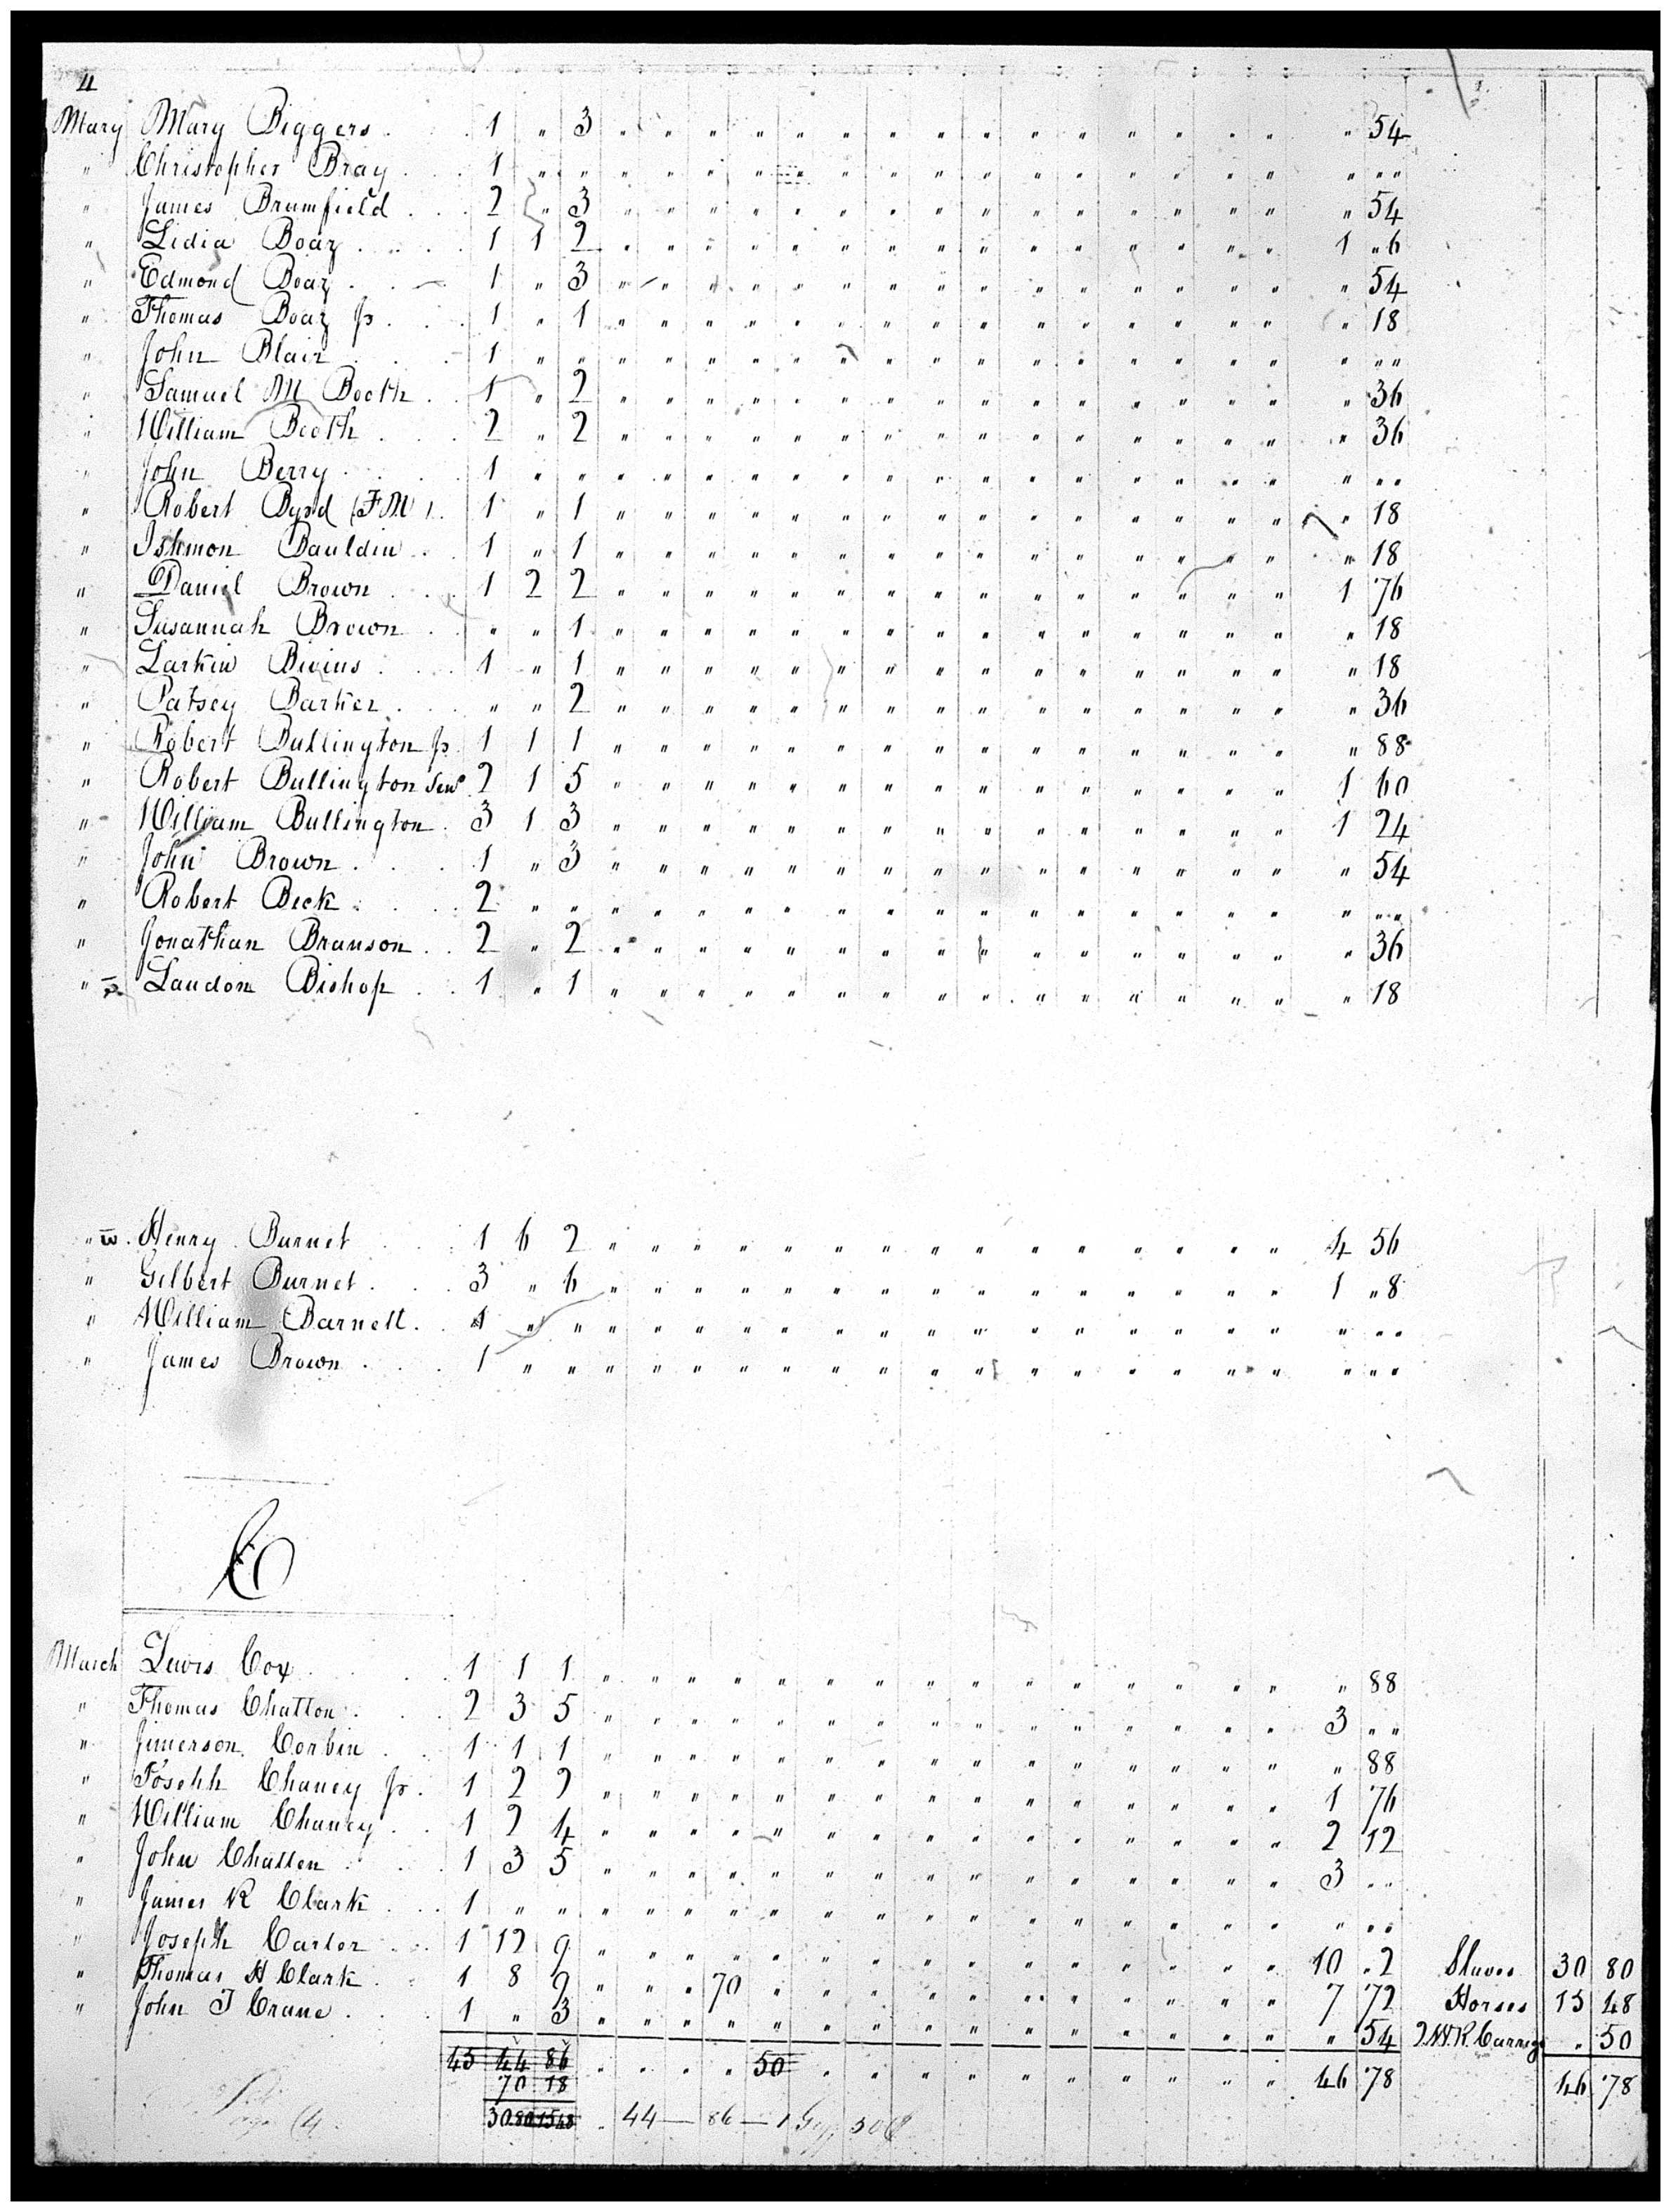 4
Mary Mary Biggers . . . 1 " 3 " " " " " " " " " " " " " " " " 54
" Christopher Bray . . . 1 " " " " " " " " " " " " " " " " " " " "
" James Brumfield . . . 2 " 3 " " " " " " " " " " " " " " " " 54
" Lidia Boaz . . . . 1 1 2 " " " " " " " " " " " " " " " 1 " 6
" Edmond Boaz . . . 1 " 3 " " " " " " " " " " " " " " " " 54
" Thomas Boaz Jr . . . 1 " 1 " " " " " " " " " " " " " " " " 18
" John Blair . . . 1 " " " " " " " " " " " " " " " " " " " "
" Samuel M Booth . . 1 " 2 " " " " " " " " " " " " " " " " 36
" William Booth . . . 2 " 2 " " " " " " " " " " " " " " " " 36
" John Berry . . . 1 " " " " " " " " " " " " " " " " " " " "
" Robert Byrd (FM) . . 1 " 1 " " " " " " " " " " " " " " " " 18
" Ishmon Bauldin . . 1 " 1 " " " " " " " " " " " " " " " " 18
" Daniel Brown . . . 1 2 2 " " " " " " " " " " " " " " " 1 76
" Susannah Brown . . " " 1 " " " " " " " " " " " " " " " " 18
" Larkin Bivins . . . 1 " 1 " " " " " " " " " " " " " " " " 18
" Patsey Barker . . . " " 2 " " " " " " " " " " " " " " " " 36
" Robert Bullington Jr. 1 1 1 " " " " " " " " " " " " " " " " 88
" Robert Bullington Senr 2 1 5 " " " " " " " " " " " " " " " 1 60
" William Bullington . 3 1 3 " " " " " " " " " " " " " " " 1 24
" John Brown . . . 1 " 3 " " " " " " " " " " " " " " " " 54
" Robert Beck . . . 2 " " " " " " " " " " " " " " " " " " " "
" Jonathan Branson . . 2 " 2 " " " " " " " " " " " " " " " " 36
" Landon Bishop . . 1 " 1 " " " " " " " " " " " " " " " " 18
" w. Henry Burnet . . 1 6 2 " " " " " " " " " " " " " " " 4 56
" Gilbert Burnet . . . 3 " 6 " " " " " " " " " " " " " " " 1 " 8
" William Barnett . . 1 " " " " " " " " " " " " " " " " " " " "
" James Brown . . . 1 " " " " " " " " " " " " " " " " " " " "
C
March Lewis Cox . . . 1 1 1 " " " " " " " " " " " " " " " " 88
" Thomas Chatton . . . 2 3 5 " " " " " " " " " " " " " " " 3 " "
" Jimerson Corbin . . 1 1 1 " " " " " " " " " " " " " " " " 88
" Joseph Chaney Jr . 1 2 2 " " " " " " " " " " " " " " " 1 76
" William Chaney . . 1 2 4 " " " " " " " " " " " " " " " 2 12
" John Chatten . . . 1 3 5 " " " " " " " " " " " " " " " 3 " "
" James R Clark . . . 1 " " " " " " " " " " " " " " " " " " " "
" Joseph Carter . . . 1 12 9 " " " " " " " " " " " " " " " 10 " 2 Slaves 30 80
" Thomas H Clark . . 1 8 9 " " " 70 " " " " " " " " " " " 7 72 Horses 15 48
" John T Crane . . . 1 " 3 " " " " " " " " " " " " " " " " 54 2.W.R. Carriage " 50
45 44 86 " " " " 50 " " " " " " " " " " 46 78 46 78
70 18
30.80 15 48 . 44 — 86 — 1 Gig 50